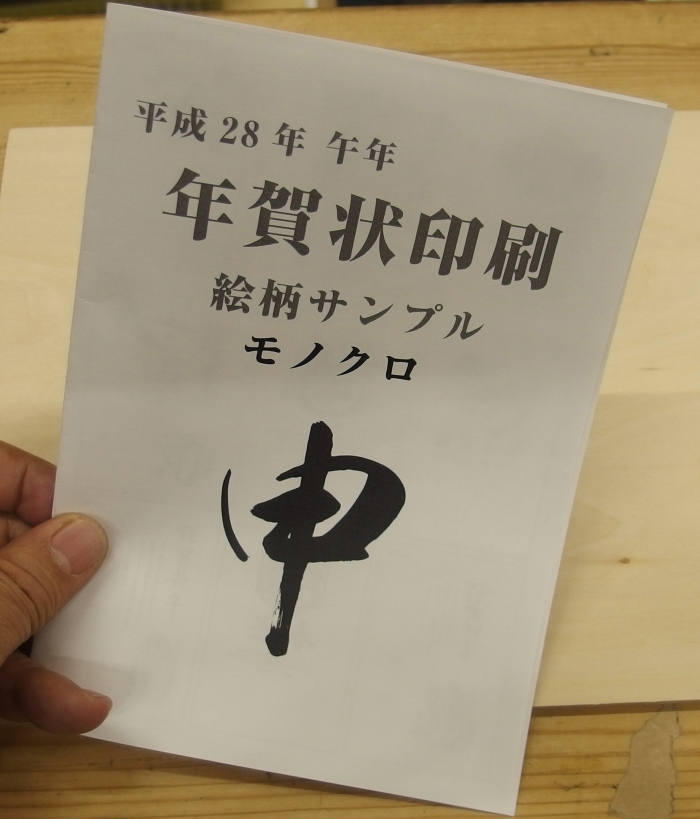 平成28年 午年
年賀状印刷
絵柄サンプル
モノクロ
申